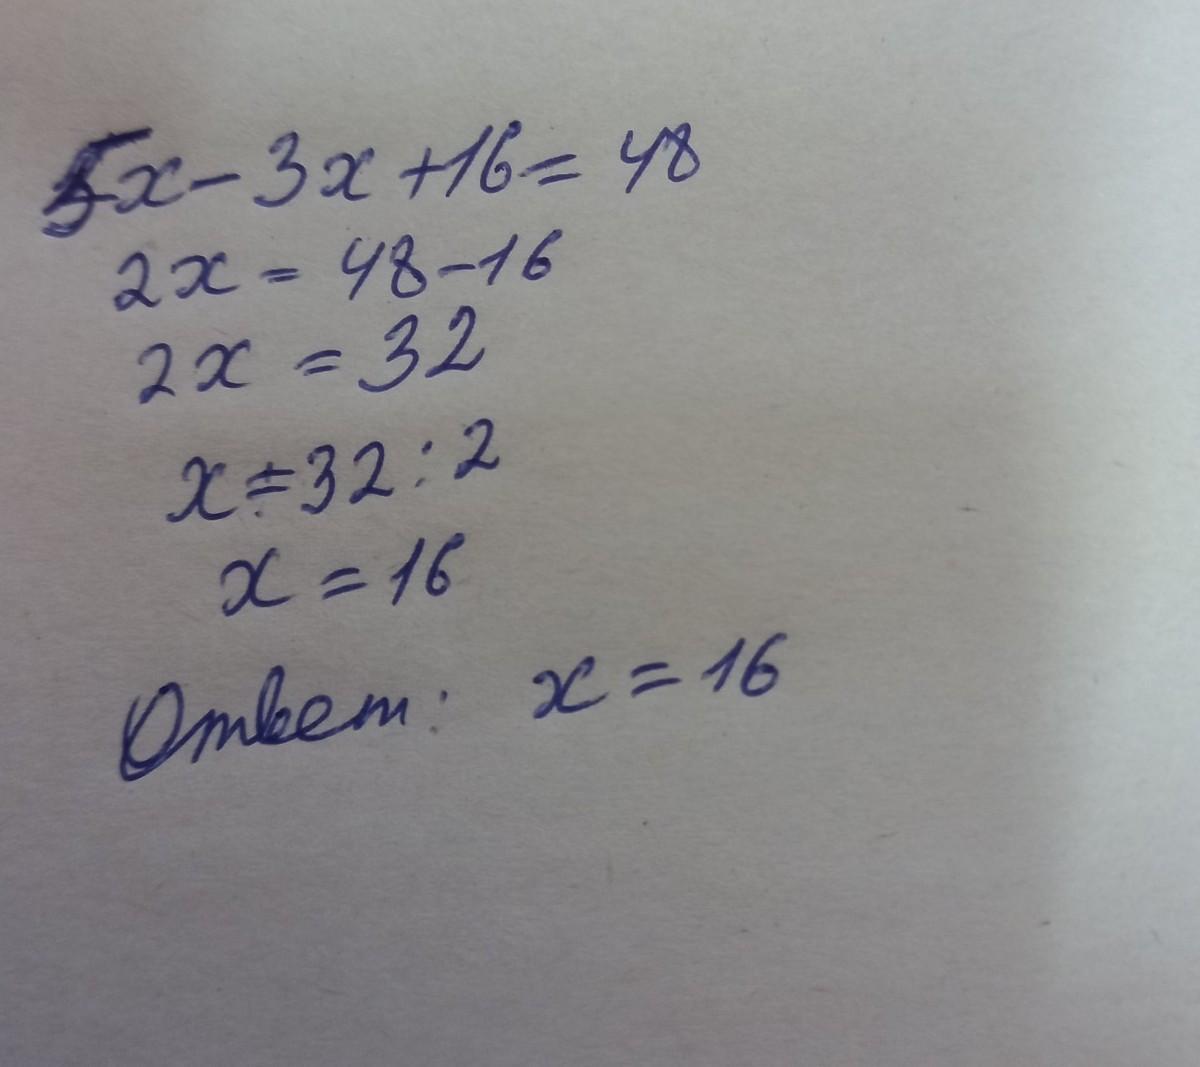 5x - 3x + 16 = 48
2x = 48 - 16
2x = 32
x = 32 : 2
x = 16
Ответ: x = 16